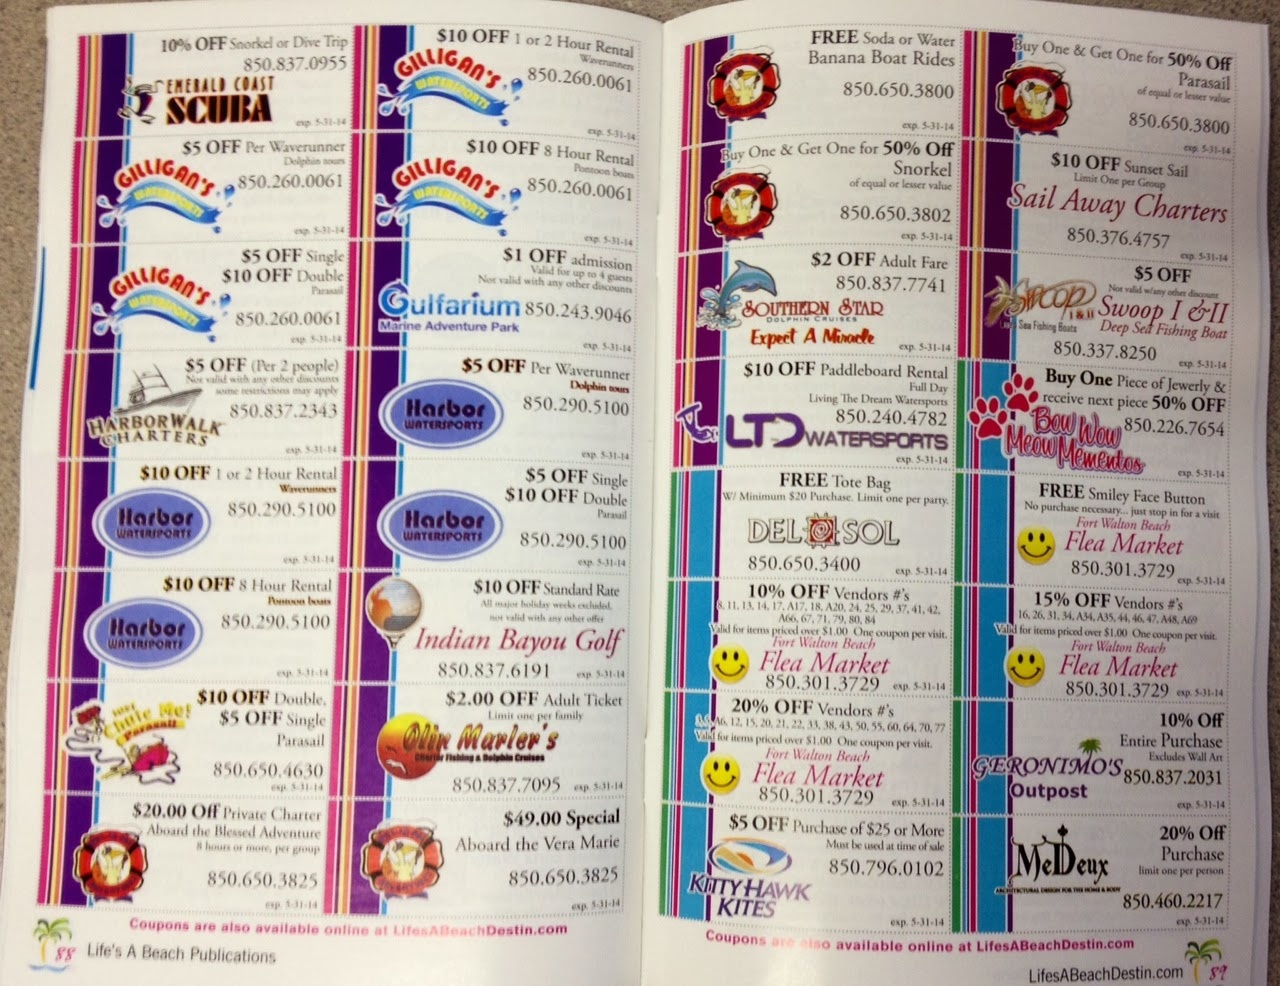 10% OFF Snorkel or Dive Trip
850.837.0955
EMERALD COAST
SCUBA
exp. 5-31-14
$10 OFF 1 or 2 Hour Rental
Waverunners
GILLIGAN'S
WATERSPORTS
850.260.0061
exp. 5-31-14
$5 OFF Per Waverunner
Dolphin tours
GILLIGAN'S
WATERSPORTS
850.260.0061
exp. 5-31-14
$10 OFF 8 Hour Rental
Pontoon boats
GILLIGAN'S
WATERSPORTS
850.260.0061
exp. 5-31-14
$5 OFF Single
$10 OFF Double
Parasail
GILLIGAN'S
WATERSPORTS
850.260.0061
exp. 5-31-14
$1 OFF admission
Valid for up to 4 guests
Not valid with any other discounts
Gulfarium
Marine Adventure Park
850.243.9046
exp. 5-31-14
$5 OFF (Per 2 people)
Not valid with any other discounts
some restrictions may apply
850.837.2343
HARBORWALK
CHARTERS
exp. 5-31-14
$5 OFF Per Waverunner
Dolphin tours
Harbor
WATERSPORTS
850.290.5100
exp. 5-31-14
$10 OFF 1 or 2 Hour Rental
Waverunners
Harbor
WATERSPORTS
850.290.5100
exp. 5-31-14
$5 OFF Single
$10 OFF Double
Parasail
Harbor
WATERSPORTS
850.290.5100
exp. 5-31-14
$10 OFF 8 Hour Rental
Pontoon boats
Harbor
WATERSPORTS
850.290.5100
exp. 5-31-14
$10 OFF Standard Rate
All major holiday weeks excluded,
not valid with any other offer
Indian Bayou Golf
850.837.6191
exp. 5-31-14
$10 OFF Double,
$5 OFF Single
Parasail
Just Chute Me!
Parasail
850.650.4630
exp. 5-31-14
$2.00 OFF Adult Ticket
Limit one per family
Olin Marler's
Charter Fishing & Dolphin Cruises
850.837.7095
exp. 5-31-14
$20.00 Off Private Charter
Aboard the Blessed Adventure
8 hours or more, per group
850.650.3825
exp. 5-31-14
$49.00 Special
Aboard the Vera Marie
850.650.3825
exp. 5-31-14
Coupons are also available online at LifesABeachDestin.com
88 Life's A Beach Publications
FREE Soda or Water
Banana Boat Rides
850.650.3800
exp. 5-31-14
Buy One & Get One for 50% Off
Parasail
of equal or lesser value
850.650.3800
exp. 5-31-14
Buy One & Get One for 50% Off
Snorkel
of equal or lesser value
850.650.3802
exp. 5-31-14
$10 OFF Sunset Sail
Limit One per Group
Sail Away Charters
850.376.4757
exp. 5-31-14
$2 OFF Adult Fare
850.837.7741
SOUTHERN STAR
DOLPHIN CRUISES
Expect A Miracle
exp. 5-31-14
$5 OFF
Not valid w/any other discount
SWOOP
I & II
Sea Fishing Boats
Swoop I & II
Deep Sea Fishing Boat
850.337.8250
exp. 5-31-14
$10 OFF Paddleboard Rental
Full Day
Living The Dream Watersports
850.240.4782
LTD WATERSPORTS
exp. 5-31-14
Buy One Piece of Jewerly &
receive next piece 50% OFF
850.226.7654
Bow Wow
Meow Mementos
exp. 5-31-14
FREE Tote Bag
W/ Minimum $20 Purchase. Limit one per party.
DEL SOL
850.650.3400
exp. 5-31-14
FREE Smiley Face Button
No purchase necessary... just stop in for a visit
Fort Walton Beach
Flea Market
850.301.3729
exp. 5-31-14
10% OFF Vendors #'s
8, 11, 13, 14, 17, A17, 18, A20, 24, 25, 29, 37, 41, 42,
A66, 67, 71, 79, 80, 84
Valid for items priced over $1.00 One coupon per visit.
Fort Walton Beach
Flea Market
850.301.3729
exp. 5-31-14
15% OFF Vendors #'s
16, 26, 31, 34, A34, A35, 44, 46, 47, A48, A69
Valid for items priced over $1.00 One coupon per visit.
Fort Walton Beach
Flea Market
850.301.3729
exp. 5-31-14
20% OFF Vendors #'s
A6, 12, 15, 20, 21, 22, 33, 38, 43, 50, 55, 60, 64, 70, 77
Valid for items priced over $1.00 One coupon per visit.
Fort Walton Beach
Flea Market
850.301.3729
exp. 5-31-14
10% Off
Entire Purchase
Excludes Wall Art
GERONIMO'S
Outpost
850.837.2031
exp. 5-31-14
$5 OFF Purchase of $25 or More
Must be used at time of sale
850.796.0102
KITTY HAWK
KITES
exp. 5-31-14
20% Off
Purchase
limit one per person
MeDeux
ARCHITECTURAL DESIGN FOR THE HOME & BODY
850.460.2217
exp. 5-31-14
Coupons are also available online at LifesABeachDestin.com
LifesABeachDestin.com 89